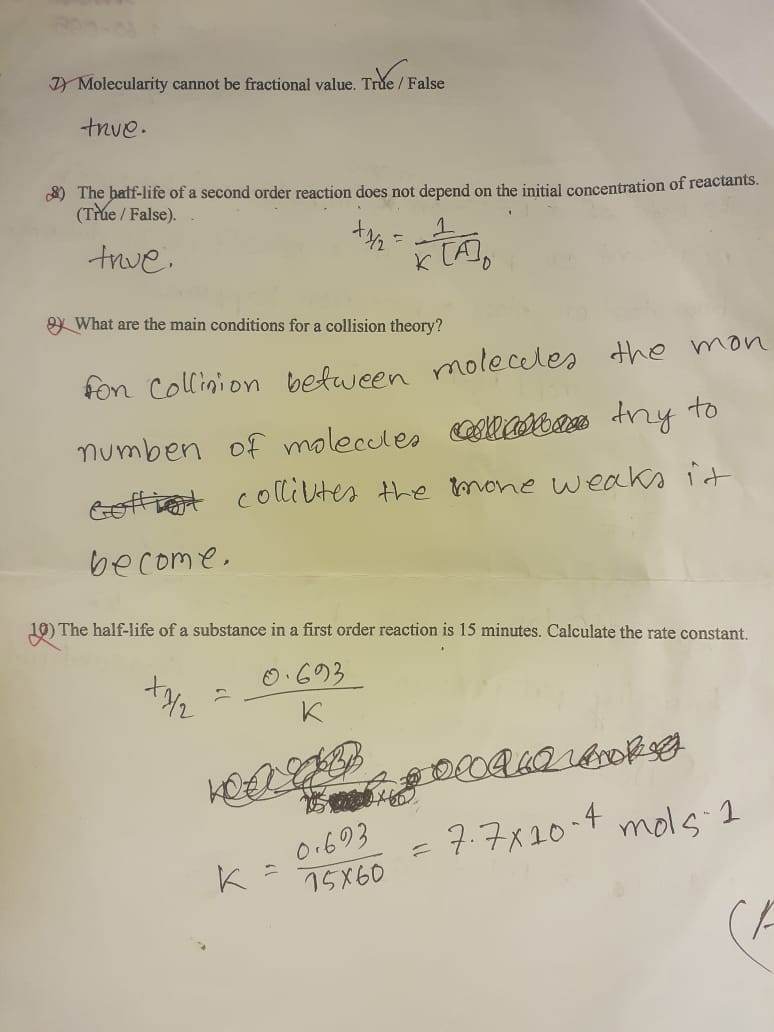 7) Molecularity cannot be fractional value. True / False
true.
8) The half-life of a second order reaction does not depend on the initial concentration of reactants.
(True / False).
t1/2 = 1 / K [A]0
true.
9) What are the main conditions for a collision theory?
for collision between molecules the mor
number of molecules try to
collites the more weaks it
become.
10) The half-life of a substance in a first order reaction is 15 minutes. Calculate the rate constant.
t1/2 = 0.693 / K
K = 0.693 / 15×60 = 7.7×10-4 mol s-1